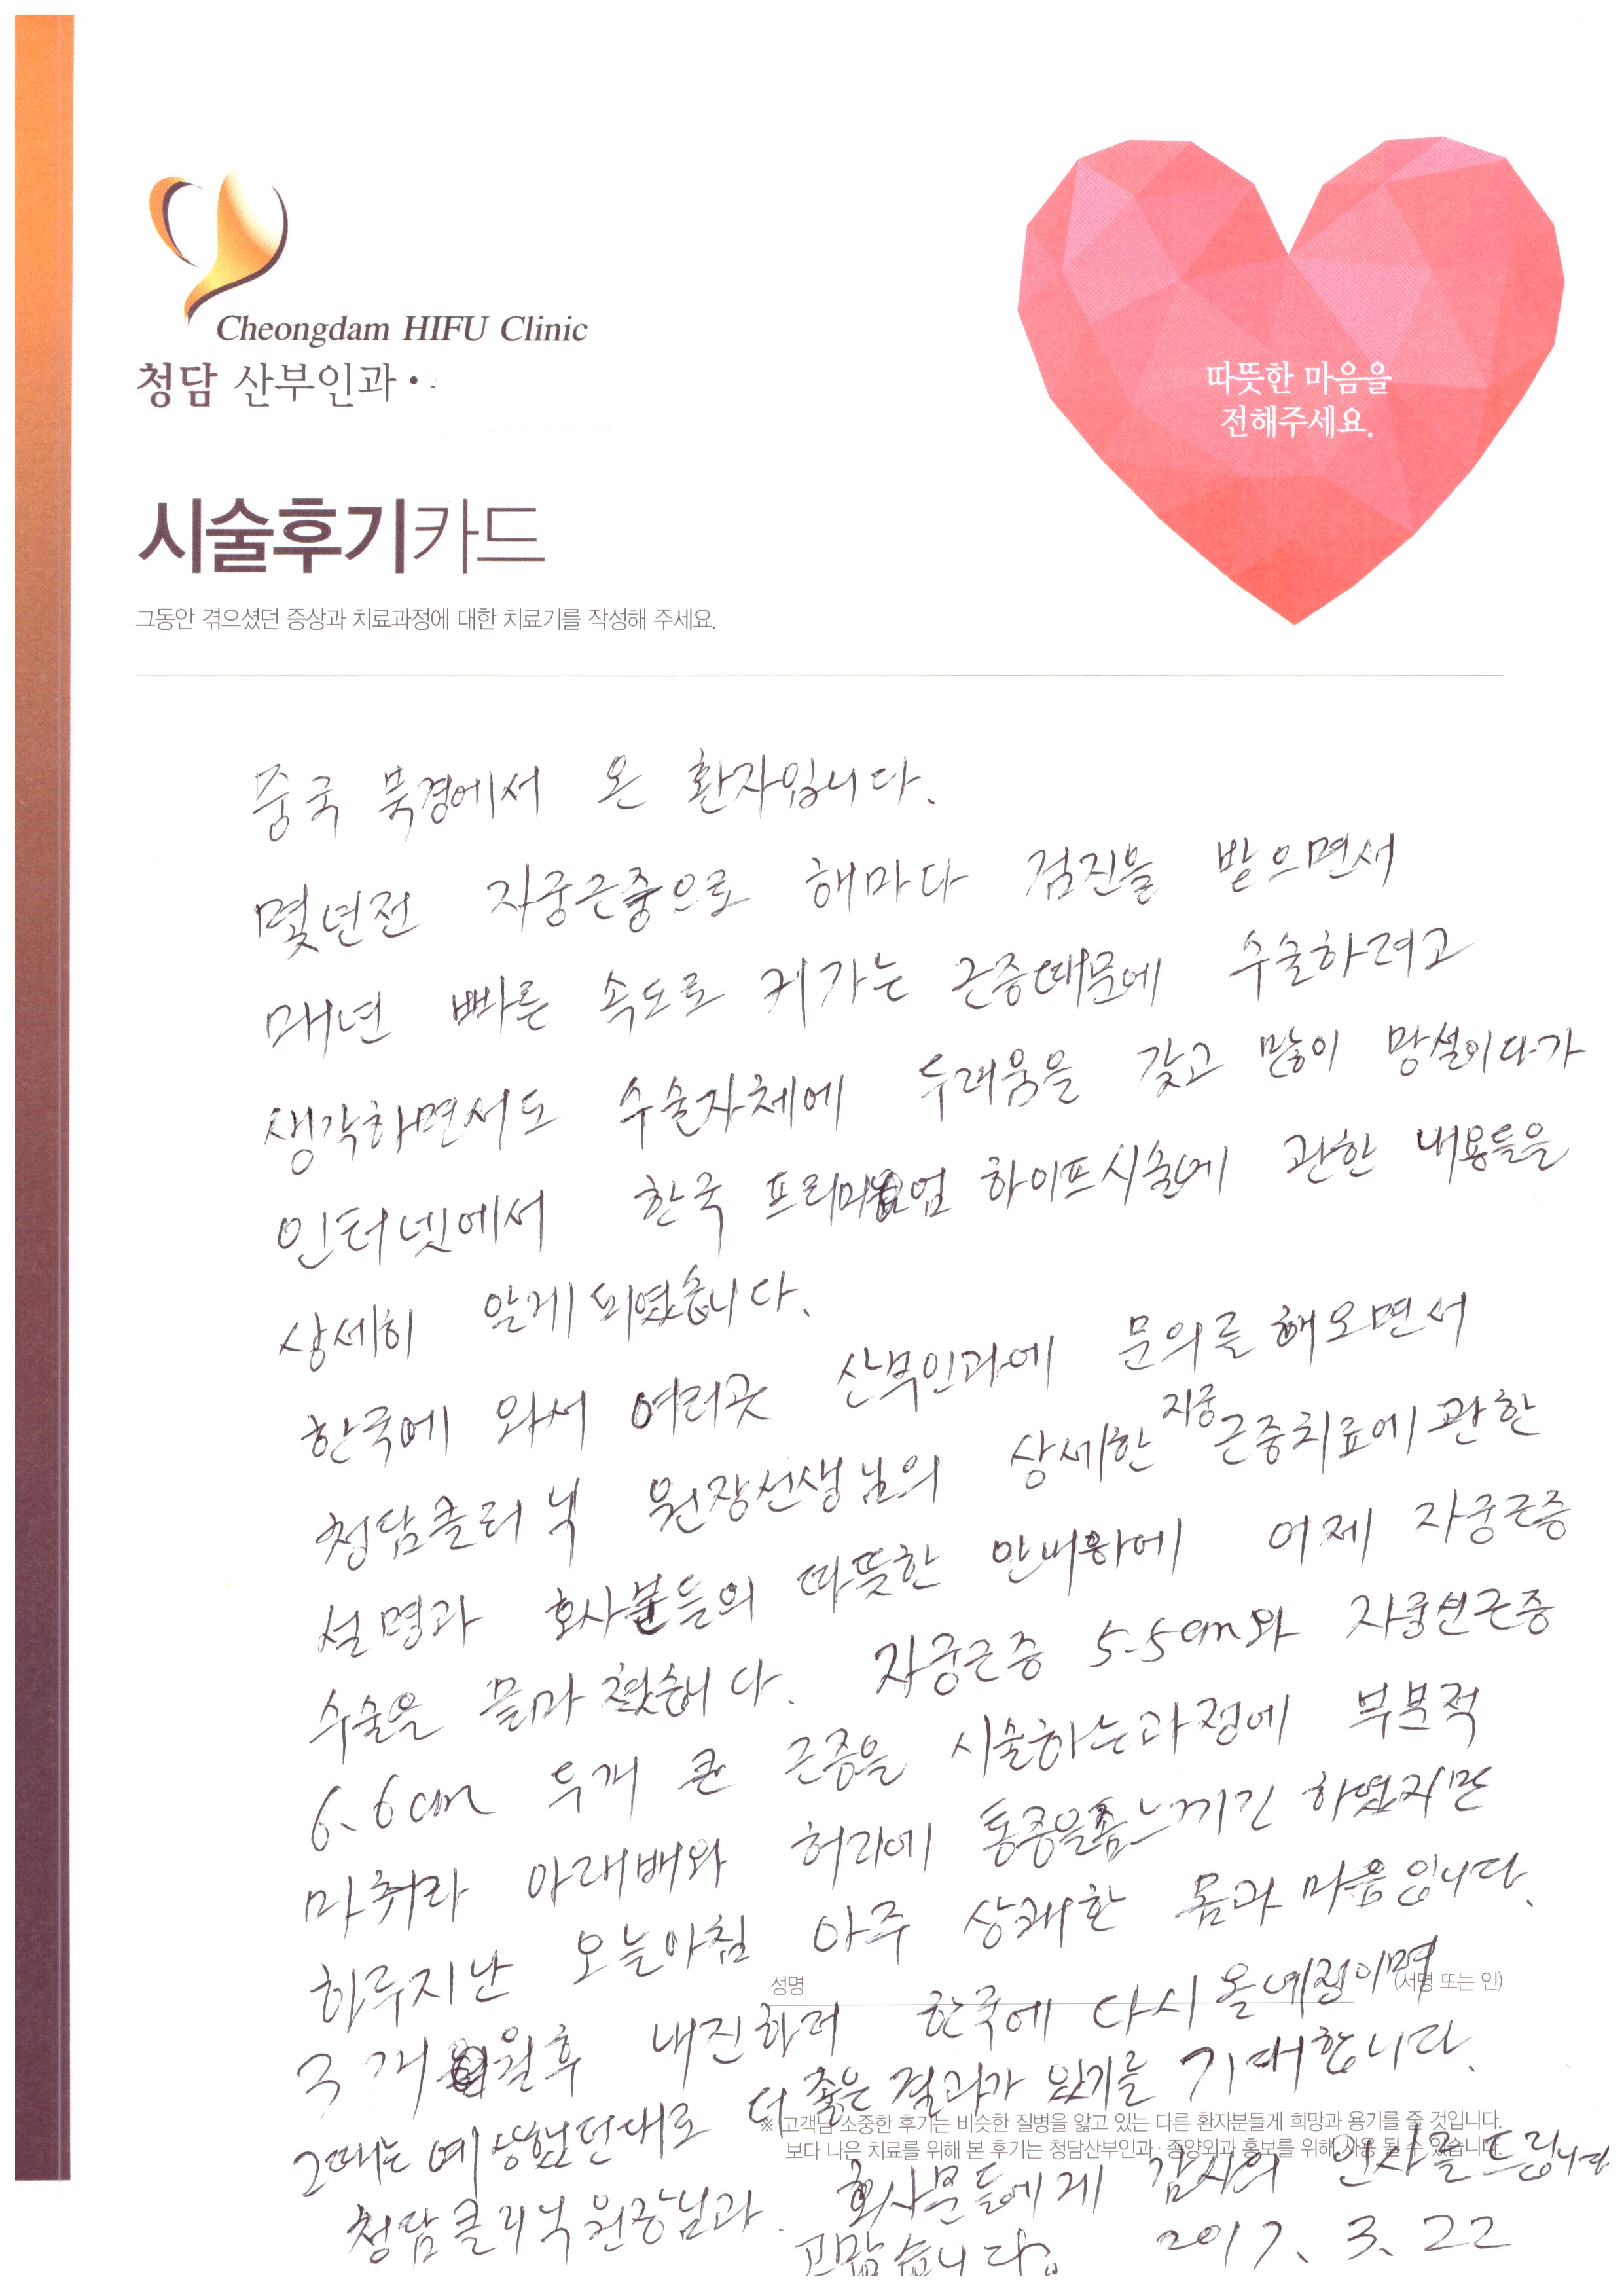 Cheongdam HIFU Clinic
청담 산부인과
따뜻한 마음을
전해주세요.
시술후기카드
그동안 겪으셨던 증상과 치료과정에 대한 치료기를 작성해 주세요.
중국 북경에서 온 환자입니다.
몇년전 자궁근종으로 해마다 검진을 받으면서
매년 빠른 속도로 커가는 근종때문에 수술하려고
생각하면서도 수술자체에 두려움을 갖고 많이 망설이다가
인터넷에서 한국 프리미엄 하이프시술에 관한 내용들을
상세히 알게 되였습니다.
한국에 와서 여러곳 산부인과에 문의를 해오면서
청담클리닉 원장선생님의 상세한 자궁근종치료에 관한
설명과 회사분들의 따뜻한 안내하에 어제 자궁근증
수술을 끝마쳤습니다. 자궁근증 5.5cm와 자궁선근증
6.6cm 두개 큰 근증을 시술하는과정에 부분적
마취라 아래배와 허리에 통증을좀느끼긴 하였지만
하루지난 오늘아침 아주 상쾌한 몸과 마음입니다.
성명 (서명 또는 인)
3개월후 내진하러 한국에 다시 올예정이며
그때는 예상했던대로 더 좋은 결과가 있기를 기대합니다.
※ 고객님 소중한 후기는 비슷한 질병을 앓고 있는 다른 환자분들께 희망과 용기를 줄 것입니다.
보다 나은 치료를 위해 본 후기는 청담산부인과·종양외과 홍보를 위해 사용 될 수 있습니다.
청담클리닉원장님과 회사분들에게 감사의 인사를드립니다
고맙습니다. 2017. 3. 22